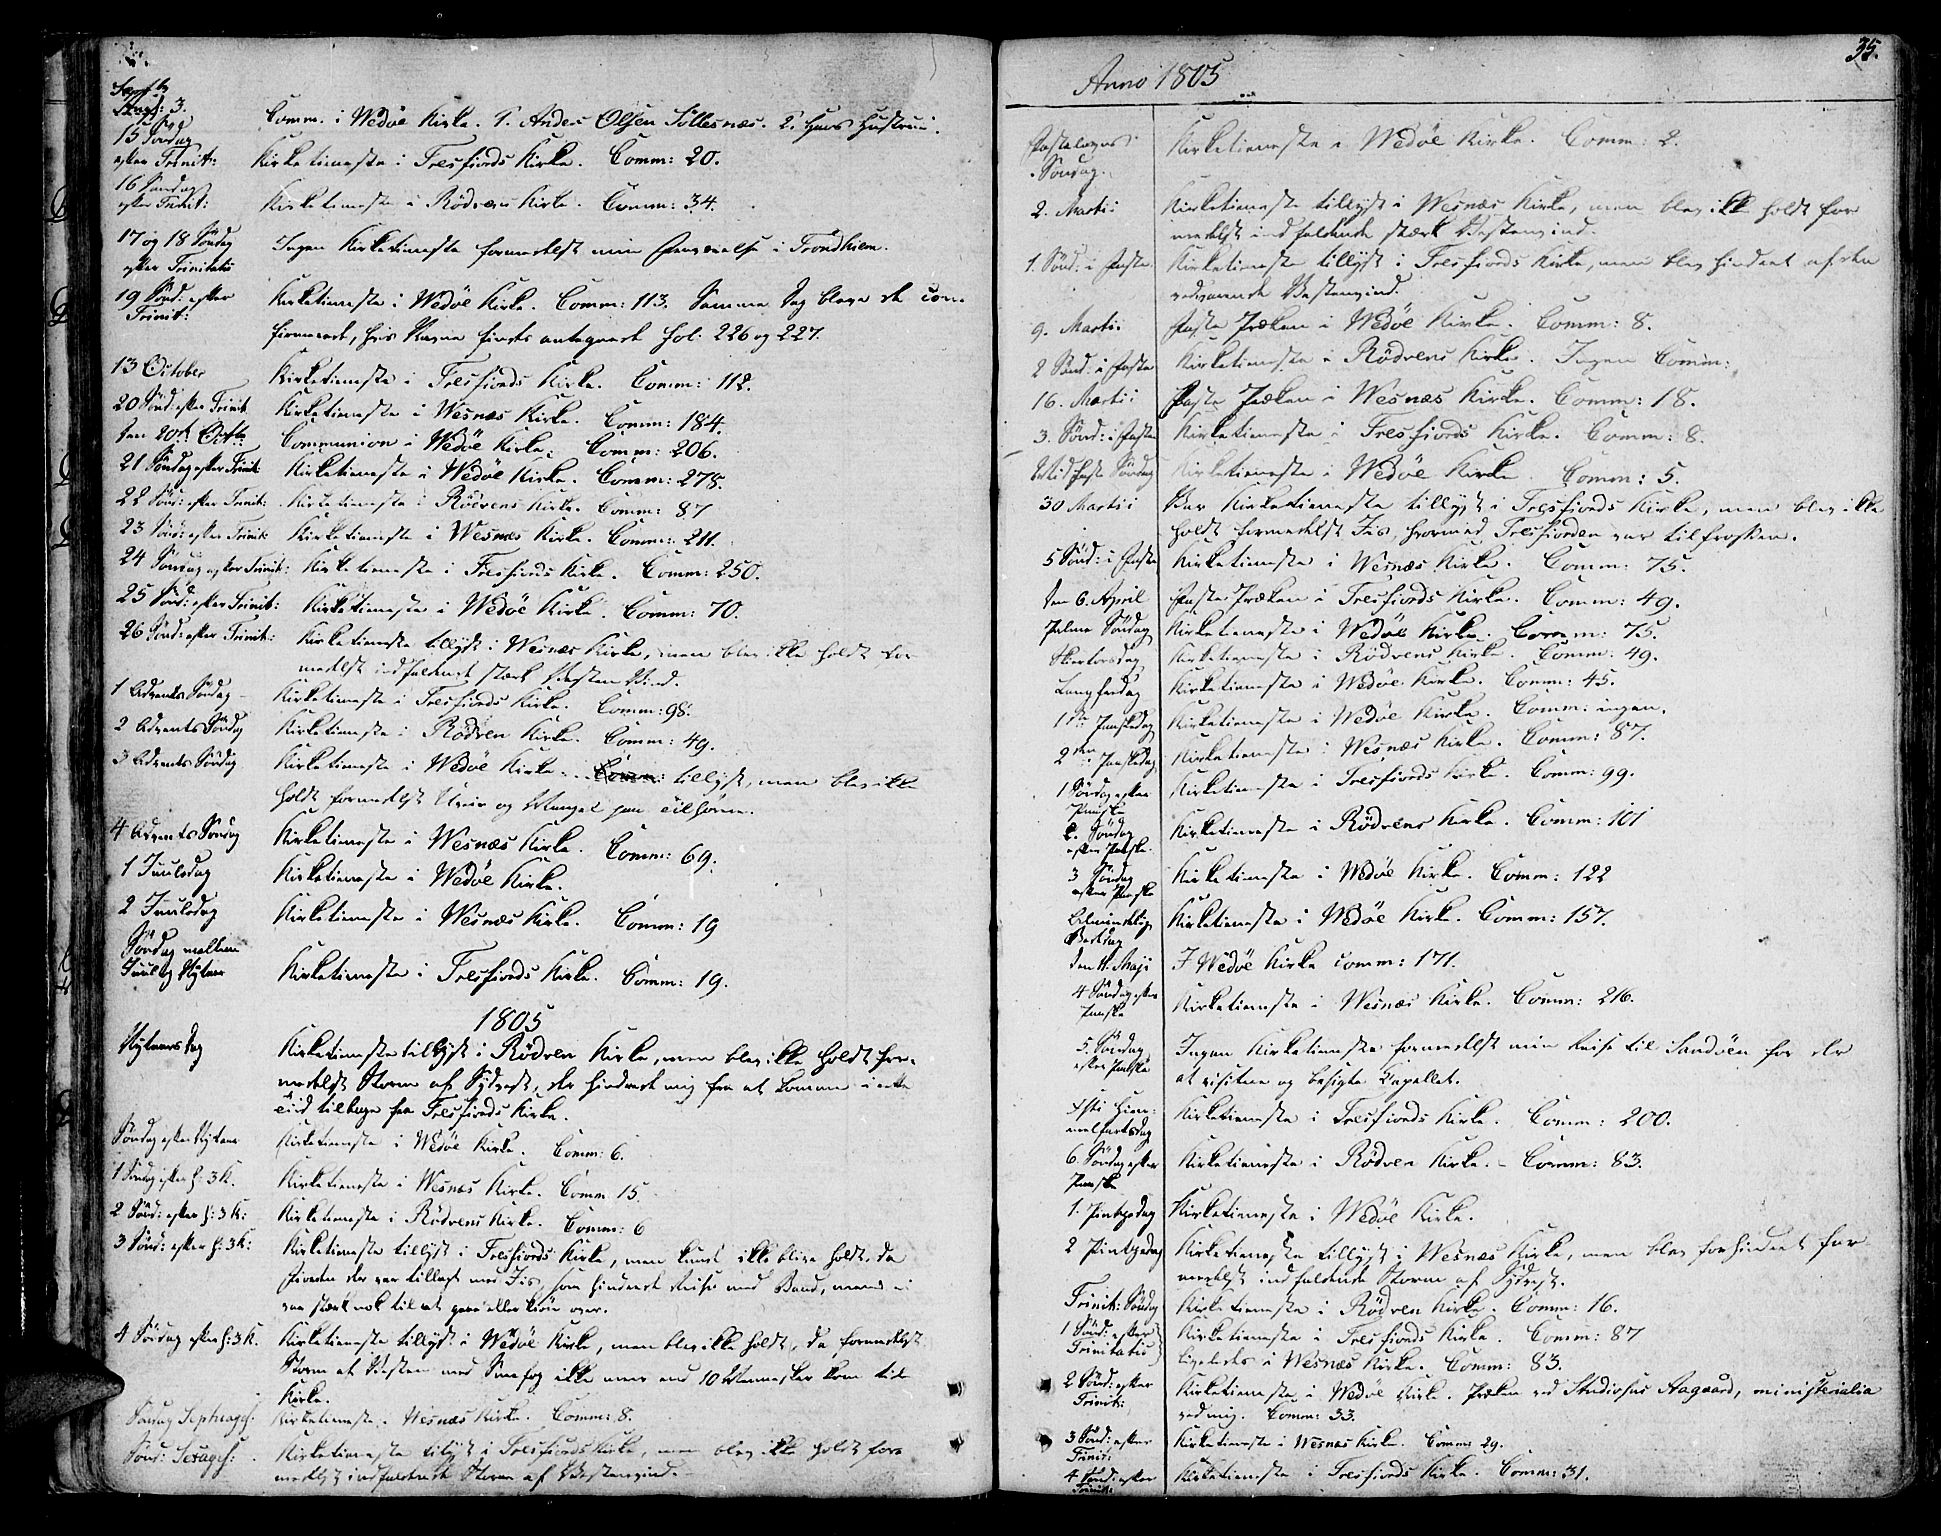 Septb:
Sept: 3. Comm. i Wedøe Kirke. 1. Anders Olsen Sollesnæs. 2. Hans Hustrue.
15 Søndag efter Trinit: Kirketieneste i Tresfiords Kirke. Comm: 20.
16 Søndag efter Trinit: Kirketieneste i Rödvens Kirke. Comm: 34.
17 og 18 Söndag efter Trinitatis Ingen Kirketieneste formedelst min Fraværelse i Trondhiem.
19 Sönd: efter Trinit: Kirketieneste i Wedöe Kirke. Comm: 113. Samme Dag bleve de con-
firmeret, hvis Navne findes antegnede Fol. 226 og 227.
13 October Kirketieneste i Tresfiords Kirke. Comm: 112.
20 Sönd: efter Trinit Kirketieneste i Wesnæs Kirke. Comm: 184.
Den 20de Octbr: Communion i Wedöe Kirke. Comm: 206.
21 Söndag efter Trinit: Kirketieneste i Wedöe Kirke. Comm: 278.
22 Sönd: efter Trinit: Kirketieneste i Rödvens Kirke. Comm: 87
23 Sönd: efter Trinit: Kirketieneste i Wesnæs Kirke. Comm: 211.
24 Söndag efter Trinit: Kirketieneste i Tresfiords Kirke. Comm: 250.
25 Sönd: efter Trinit: Kirketieneste i Wedöe Kirke. Comm: 70.
26 Sönd: efter Trinit: Kirketieneste tillyst i Wesnæs Kirke, men blev ikke holdt for-
medelst indfaldende stærk Westen Vind.
1 Advents Söndag Kirketieneste i Tresfiords Kirke. Comm: 98.
2 Advents Söndag Kirketieneste i Rödven Kirke. Comm: 49.
3 Advents Söndag Kirketieneste i Wedöe Kirke. Comm: tillyst, men blev ikke
holdt formedelst Uveir og Mangel paa Tilhörere.
4 Advents Söndag Kirketieneste i Wesnæs Kirke. Comm: 69.
1 Juuledag Kirketieneste i Wedöe Kirke.
2 Juuledag Kirketieneste i Wesnæs Kirke. Comm: 19
Söndag mellem Juul og Nytaar Kirketieneste i Tresfiords Kirke. Comm: 19.
1805
Nytaarsdag Kirketieneste tillyst i Rödven Kirke, men blev ikke holdt for-
medelst Storm af Sydvest, der hindrede mig fra at komme i rette
Tid tilbage fra Tresfiords Kirke.
Söndag efter Nytaar Kirketieneste i Wedöe Kirke. Comm: 6.
1 Söndag efter h: 3 K. Kirketieneste i Wesnæs Kirke. Comm 15.
2 Sönd: efter h: 3 K: Kirketieneste i Rödvens Kirke. Comm: 6
3 Sönd: efter h: 3 K: Kirketieneste tillyst i Tresfiords Kirke, men kunde ikke blive holdt, da
Fiorden der var tillagt med Iis, som hindrede Reise med Baad, mens ei
var stærk nok til at gaae eller kiøre over.
4 Söndag efter h: 3 K. Kirketieneste tillyst i Wedöe Kirke, men blev ikke holdt, da formedelst
Storm af Vesten med Sneefog ikke meer end 10 Mennesker kom til
Kirke.
Söndag Septuages: Kirketieneste i Wesnæs Kirke. Comm: 8.
Sönd: Sexages: Kirketieneste tillyst i Tresfiords Kirke, men blev ikke holdt for-
medelst indfaldende Storm af Westenvind.
35.
Anno 1805
Fastelavns Söndag. Kirketieneste i Wedöe Kirke. Comm: 2.
2. Martii Kirketieneste tillyst i Wesnæs Kirke, men blev ikke holdt for-
medelst indfaldende stærk Vestenvind.
1. Sönd: i Faste Kirketieneste tillyst i Tresfiords Kirke, men blev hindret af den
vedvarende Vestenvind.
9. Martii Faste Præken i Wedöe Kirke. Comm: 8.
2 Sönd: i Faste Kirketieneste i Rödvens Kirke. Ingen Comm:
16. Martii Faste Præken i Wesnæs Kirke. Comm: 18.
3. Sönd: i Faste Kirketieneste i Tresfiords Kirke. Comm: 8.
Mid Faste Söndag Kirketieneste i Wedöe Kirke. Comm: 5.
30 Martii Var Kirketieneste tillyst i Tresfiords Kirke, men blev ikke
holdt formedelst Iis, hvormed Tresfiorden var tilfrossen.
5 Sönd: i Faste Kirketieneste i Wesnæs Kirke. Comm: 75.
Den 6. April Faste Præken i Tresfiords Kirke. Comm: 49.
Palme Söndag Kirketieneste i Wedöe Kirke. Comm: 75.
Skiertorsdag Kirketieneste i Rödvens Kirke. Comm: 49.
Langfredag Kirketieneste i Wedöe Kirke. Comm: 45.
1ste Paaskedag Kirketieneste i Wedöe Kirke. Comm: ingen.
2den Paaskedag Kirketieneste i Wesnæs Kirke. Comm: 87.
1 Söndag efter Paaske Kirketieneste i Tresfiords Kirke. Comm: 99.
2. Söndag efter Paaske. Kirketieneste i Rödvens Kirke. Comm: 101
3 Söndag efter Paaske Kirketieneste i Wedöe Kirke. Comm: 122
Almindelig Bededag Kirketieneste i Wedöe Kirke. Comm: 157.
Den 11. Maji I Wedöe Kirke comm: 171.
4 Söndag efter Paaske Kirketieneste i Wesnæs Kirke. Comm: 216.
5. Söndag efter Paaske Ingen Kirketieneste formedelst min Reise til Sandöen for der
at visitere og besigte Capellet.
Xsti Himmelfartsdag Kirketieneste i Tresfiords Kirke. Comm: 200.
6. Söndag efter Paaske Kirketieneste i Rödven Kirke. Comm: 83.
1. Pintzedag Kirketieneste i Wedöe Kirke.
2 Pintzedag Kirketieneste tillyst i Wesnæs Kirke, men blev forhindret for-
medelst indfaldende Storm af Sydvest.
Trinit: Söndag Kirketieneste i Rödven Kirke. Comm: 16.
1 Sönd: efter Trinitatis Kirketieneste i Tresfiords Kirke. Comm: 87
ligeledes i Wesnæs Kirke. Comm: 83.
2 Sönd: efter Trinit: Kirketieneste i Wedöe Kirke. Præken ved Studiosus Aagaard, ministerialia
ved mig. Comm: 33.
3 Sönd: efter Trinit: Kirketieneste i Wesnæs Kirke. Comm: 29.
4 Sönd: efter Trinit: Kirketieneste i Tresfiords Kirke. Comm: 31.